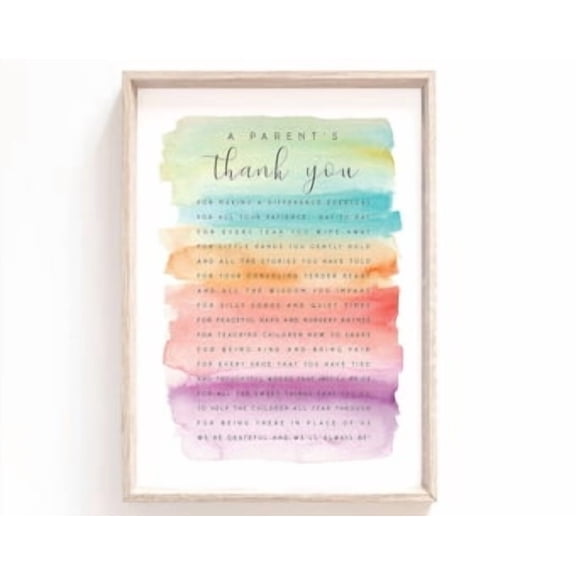 A PARENT'S
thank you
FOR MAKING A DIFFERENCE EVERYDAY
FOR ALL YOUR PATIENCE, DAY
FOR EVERY TEAR YOU WIPE AWAY
FOR LITTLE HANDS YOU GENTLY HOLD
AND ALL THE STORIES YOU HAVE TOLD
FOR YOUR CONSOLING TENDER HEART
AND ALL THE WISDOM YOU IMPART
FOR SILLY SONGS AND QUIET TIMES
FOR PEACEFUL NAPS AND NURSERY RHYMES
FOR TEACHING CHILDREN HOW TO SHARE
FOR BEING KIND AND BEING FAIR
FOR EVERY SHOE THAT YOU HAVE TIED
AND THOUGHTFUL WORDS THAT
FOR ALL THE SWEET THINGS THAT YOU DO
TO HELP THE CHILDREN ALL YEAR THROUGH
FOR BEING THERE IN PLACE OF US
WE'RE GRATEFUL AND WE'LL ALWAYS BE